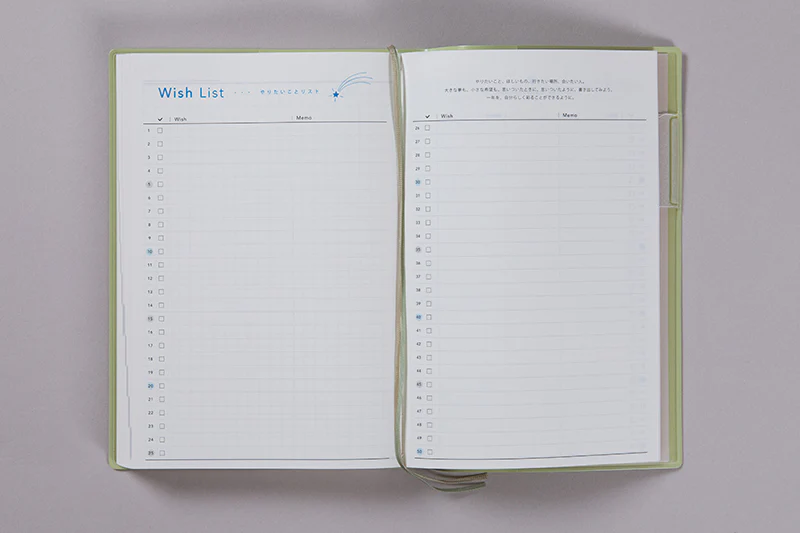 Wish List ・・・ やりたいことリスト
✓ Wish Memo
1
2
3
4
5
6
7
8
9
10
11
12
13
14
15
16
17
18
19
20
21
22
23
24
25
やりたいこと、ほしいもの、行きたい場所、会いたい人。
大きな夢も、小さな希望も、思いついたときに、思いついたように、書き出してみよう。
一年を、自分らしく ことができるように。
✓ Wish Memo
26
27
28
29
30
31
32
33
34
35
36
37
38
39
40
41
42
43
44
45
46
47
48
49
50